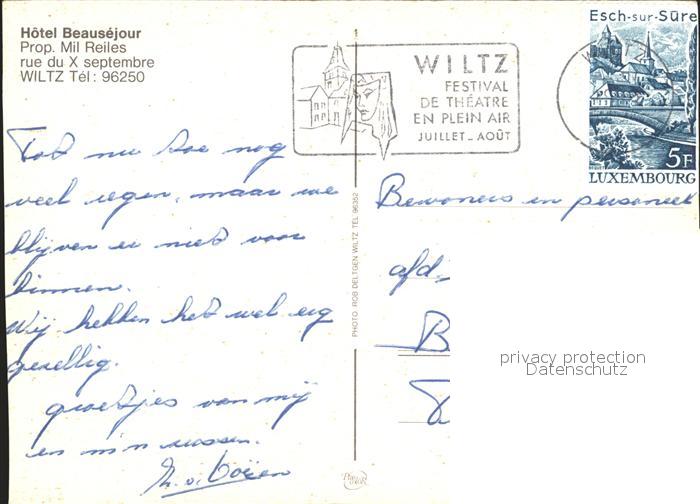 Hôtel Beauséjour
Prop. Mil Reiles
rue du X septembre
WILTZ Tél: 96250
WILTZ
FESTIVAL
DE THÉATRE
EN PLEIN AIR
JUILLET_AOÛT
WILTZ
Esch-sur-Sûre
5F
LUXEMBOURG
Tot nu toe nog
veel regen, maar we
blijven er niet voor
binnen.
Wij hebben het wel erg
gezellig.
groetjes van mij
en m'n zussen.
PHOTO: ROB DELTGEN WILTZ TEL 96352
Bewoners en personeel
afd.
B
privacy protection
Datenschutz